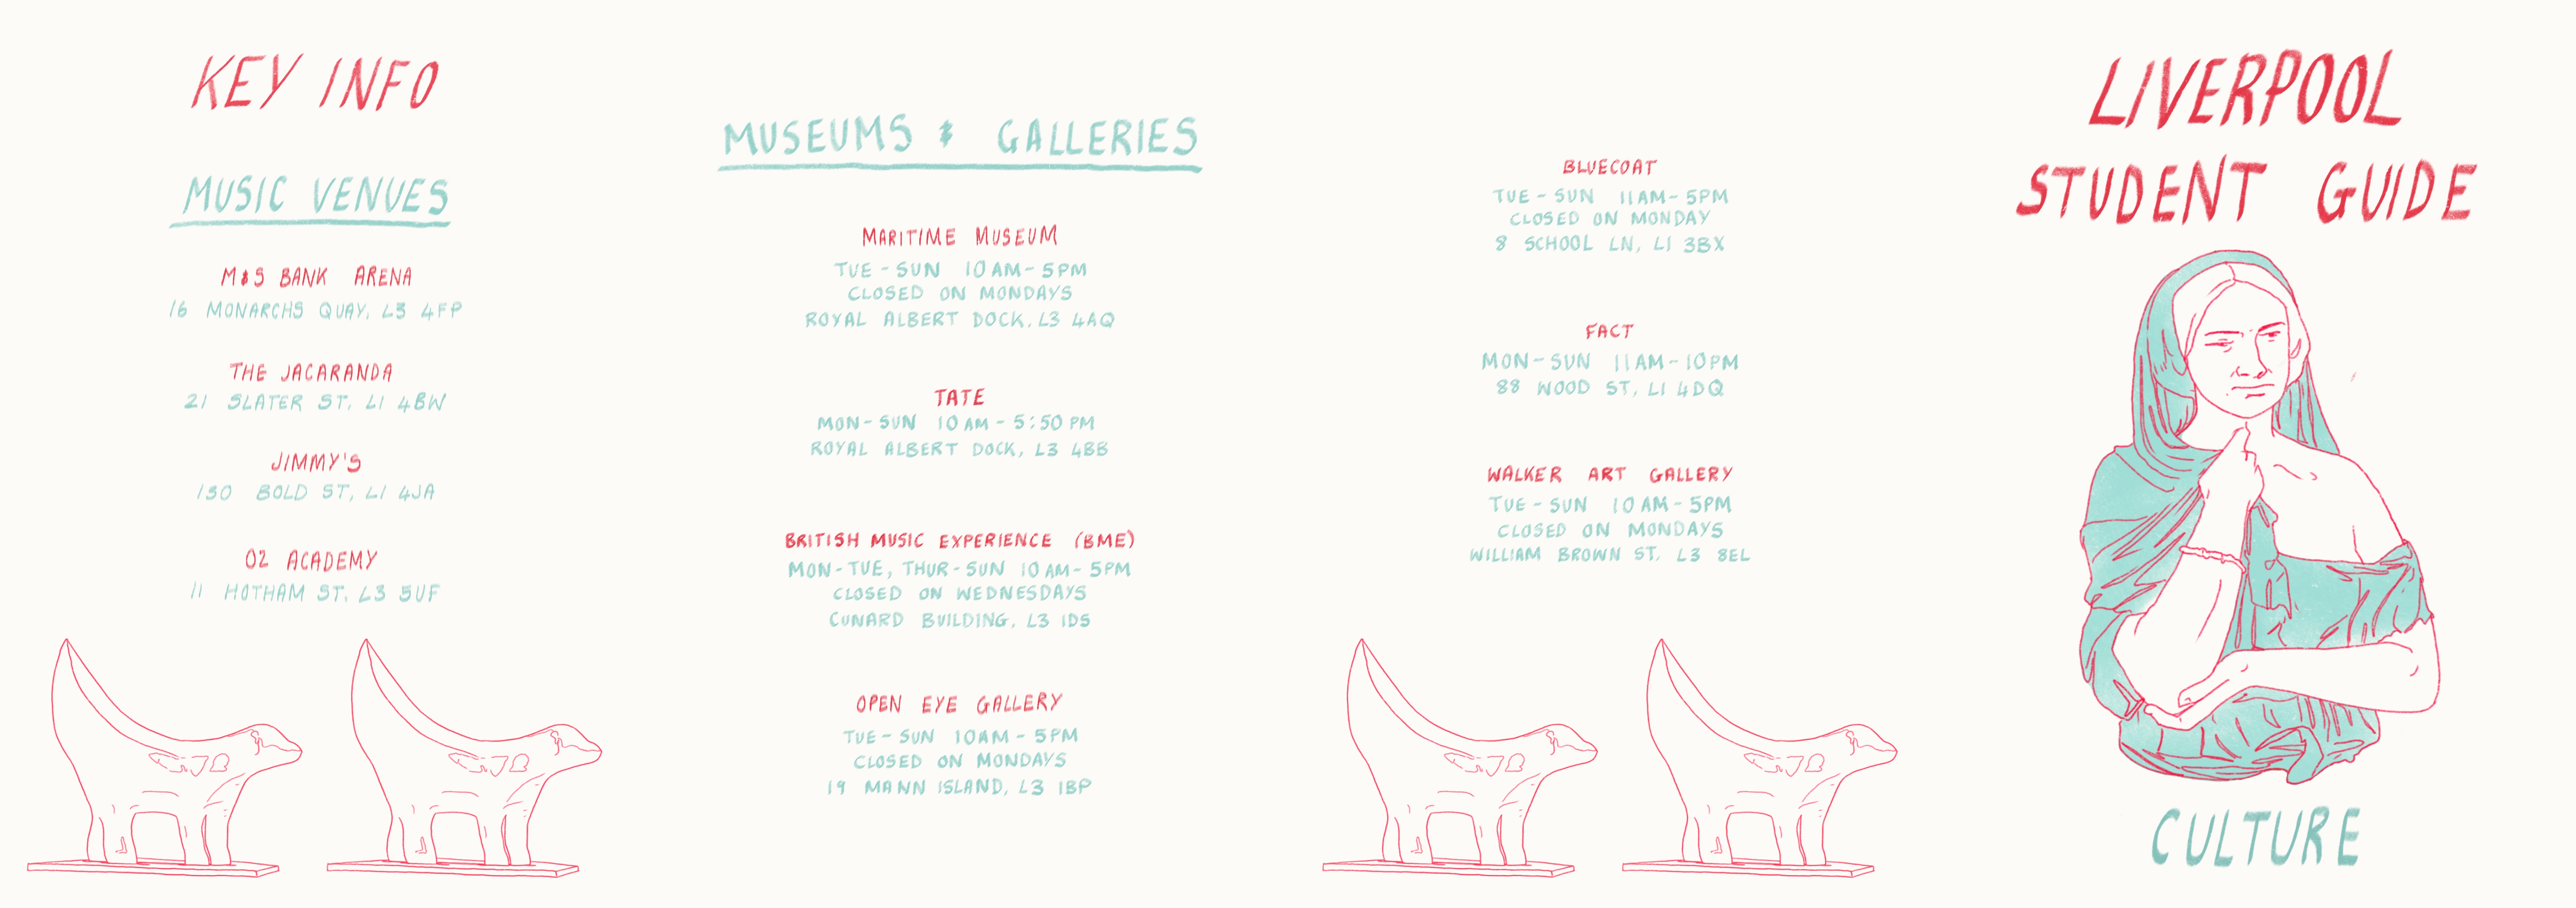 KEY INFO
MUSIC VENUES
M&S BANK ARENA
16 MONARCHS QUAY, L3 4FP
THE JACARANDA
21 SLATER ST, L1 4BW
JIMMY'S
130 BOLD ST, L1 4JA
O2 ACADEMY
11 HOTHAM ST. L3 5UF
MUSEUMS & GALLERIES
MARITIME MUSEUM
TUE - SUN 10AM - 5PM
CLOSED ON MONDAYS
ROYAL ALBERT DOCK, L3 4AQ
TATE
MON - SUN 10AM - 5:50PM
ROYAL ALBERT DOCK, L3 4BB
BRITISH MUSIC EXPERIENCE (BME)
MON - TUE, THUR - SUN 10AM - 5PM
CLOSED ON WEDNESDAYS
CUNARD BUILDING, L3 1DS
OPEN EYE GALLERY
TUE - SUN 10AM - 5PM
CLOSED ON MONDAYS
19 MANN ISLAND, L3 1BP
BLUECOAT
TUE - SUN 11AM - 5PM
CLOSED ON MONDAY
8 SCHOOL LN, L1 3BX
FACT
MON - SUN 11AM - 10PM
88 WOOD ST, L1 4DQ
WALKER ART GALLERY
TUE - SUN 10AM - 5PM
CLOSED ON MONDAYS
WILLIAM BROWN ST, L3 8EL
LIVERPOOL
STUDENT GUIDE
CULTURE